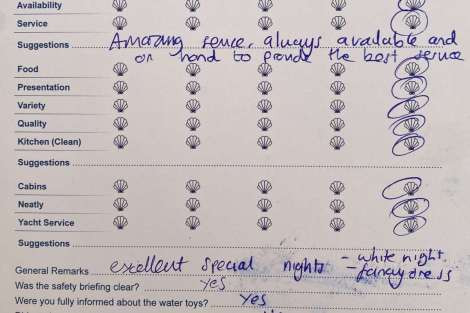 Availability
Service
Suggestions Amazing service, always available and
on hand to provide the best service
Food
Presentation
Variety
Quality
Kitchen (Clean)
Suggestions
Cabins
Neatly
Yacht Service
Suggestions
General Remarks excellent special nights - white night
- fancy dress
Was the safety briefing clear? yes
Were you fully informed about the water toys? yes